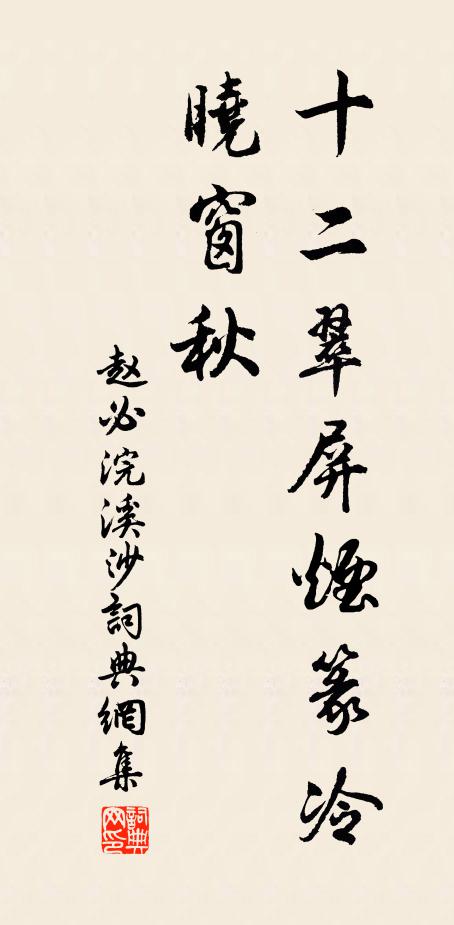 十二翠屏煙篆冷
曉窗秋
赵必浣溪沙詞典網集
詞典
网印